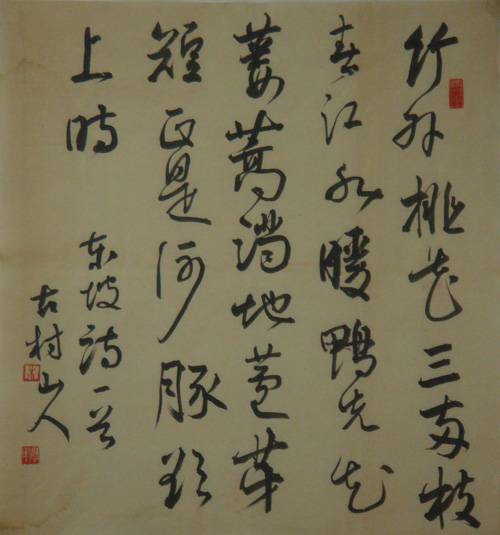 竹外桃花三两枝
春江水暖鴨先知
蔞蒿满地蘆芽
短正是河豚欲
上時
东坡詩一首
古村山人